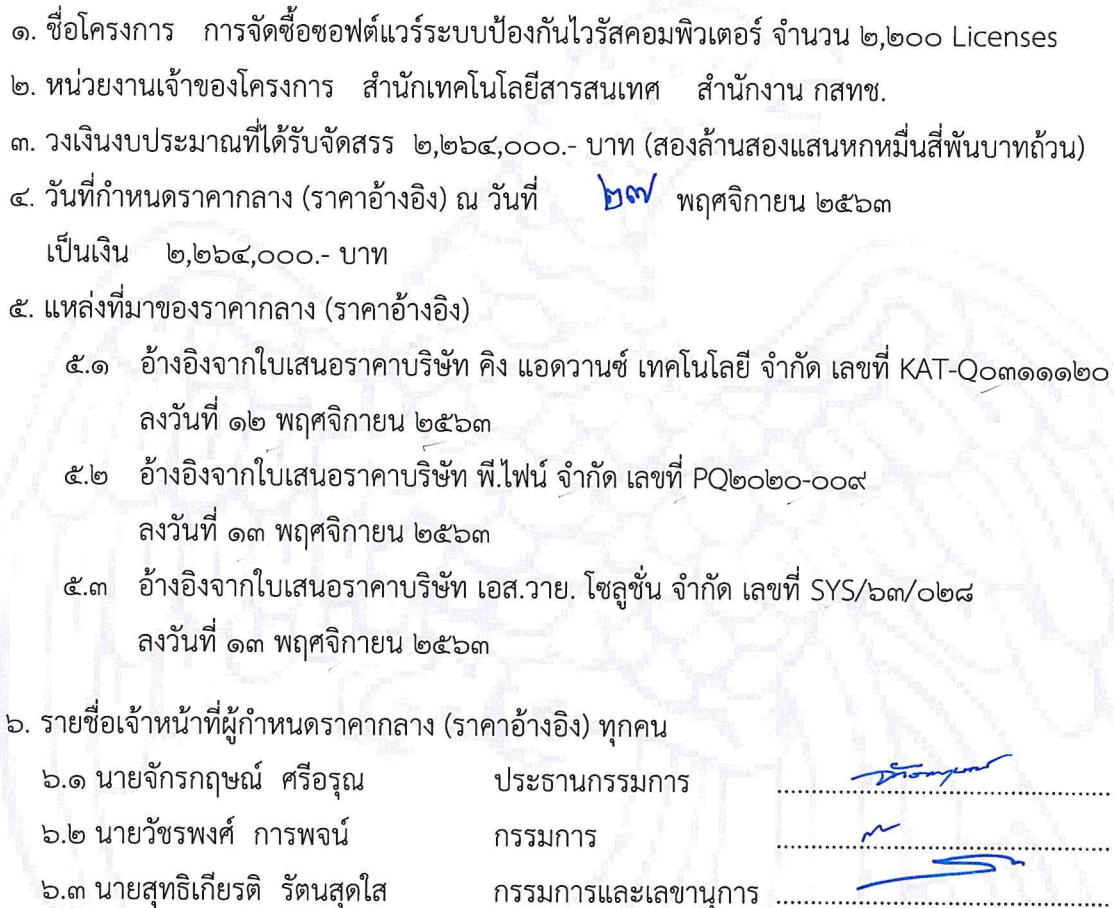 ๑. ชื่อโครงการ การจัดซื้อซอฟต์แวร์ระบบป้องกันไวรัสคอมพิวเตอร์ จำนวน ๒,๒๐๐ Licenses
๒. หน่วยงานเจ้าของโครงการ สำนักเทคโนโลยีสารสนเทศ สำนักงาน กสทช.
๓. วงเงินงบประมาณที่ได้รับจัดสรร ๒,๒๖๔,๐๐๐.- บาท (สองล้านสองแสนหกหมื่นสี่พันบาทถ้วน)
๔. วันที่กำหนดราคากลาง (ราคาอ้างอิง) ณ วันที่ ๒๗ พฤศจิกายน ๒๕๖๓
เป็นเงิน ๒,๒๖๔,๐๐๐.- บาท
๕. แหล่งที่มาของราคากลาง (ราคาอ้างอิง)
๕.๑ อ้างอิงจากใบเสนอราคาบริษัท คิง แอดวานซ์ เทคโนโลยี จำกัด เลขที่ KAT-Q๐๓๑๑๑๒๐
ลงวันที่ ๑๒ พฤศจิกายน ๒๕๖๓
๕.๒ อ้างอิงจากใบเสนอราคาบริษัท พี.ไฟน์ จำกัด เลขที่ PQ๒๐๒๐-๐๐๙
ลงวันที่ ๑๓ พฤศจิกายน ๒๕๖๓
๕.๓ อ้างอิงจากใบเสนอราคาบริษัท เอส.วาย. โซลูชั่น จำกัด เลขที่ SYS/๖๓/๐๒๘
ลงวันที่ ๑๓ พฤศจิกายน ๒๕๖๓
๖. รายชื่อเจ้าหน้าที่ผู้กำหนดราคากลาง (ราคาอ้างอิง) ทุกคน
๖.๑ นายจักรกฤษณ์ ศรีอรุณ ประธานกรรมการ
๖.๒ นายวัชรพงศ์ การพจน์ กรรมการ
๖.๓ นายสุทธิเกียรติ รัตนสุดใส กรรมการและเลขานุการ